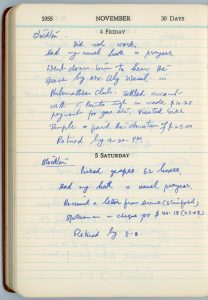 1955 NOVEMBER 30 DAYS
4 FRIDAY
Stockton -
Did not work.
Had my usual bath & prayers.
Went down-town to hear the
speech by Mr. Aly Wassil in
Philomathean Club. Settled account
with & made $ 10.25
payment for gas etc. Visited
Temple & paid the donation of $ 25.00
Retired by
5 SATURDAY
Stockton -
Picked grapes 62 boxes.
Had my bath & usual prayers.
Received a letter from
a cheque for $
Retired by 8-0.